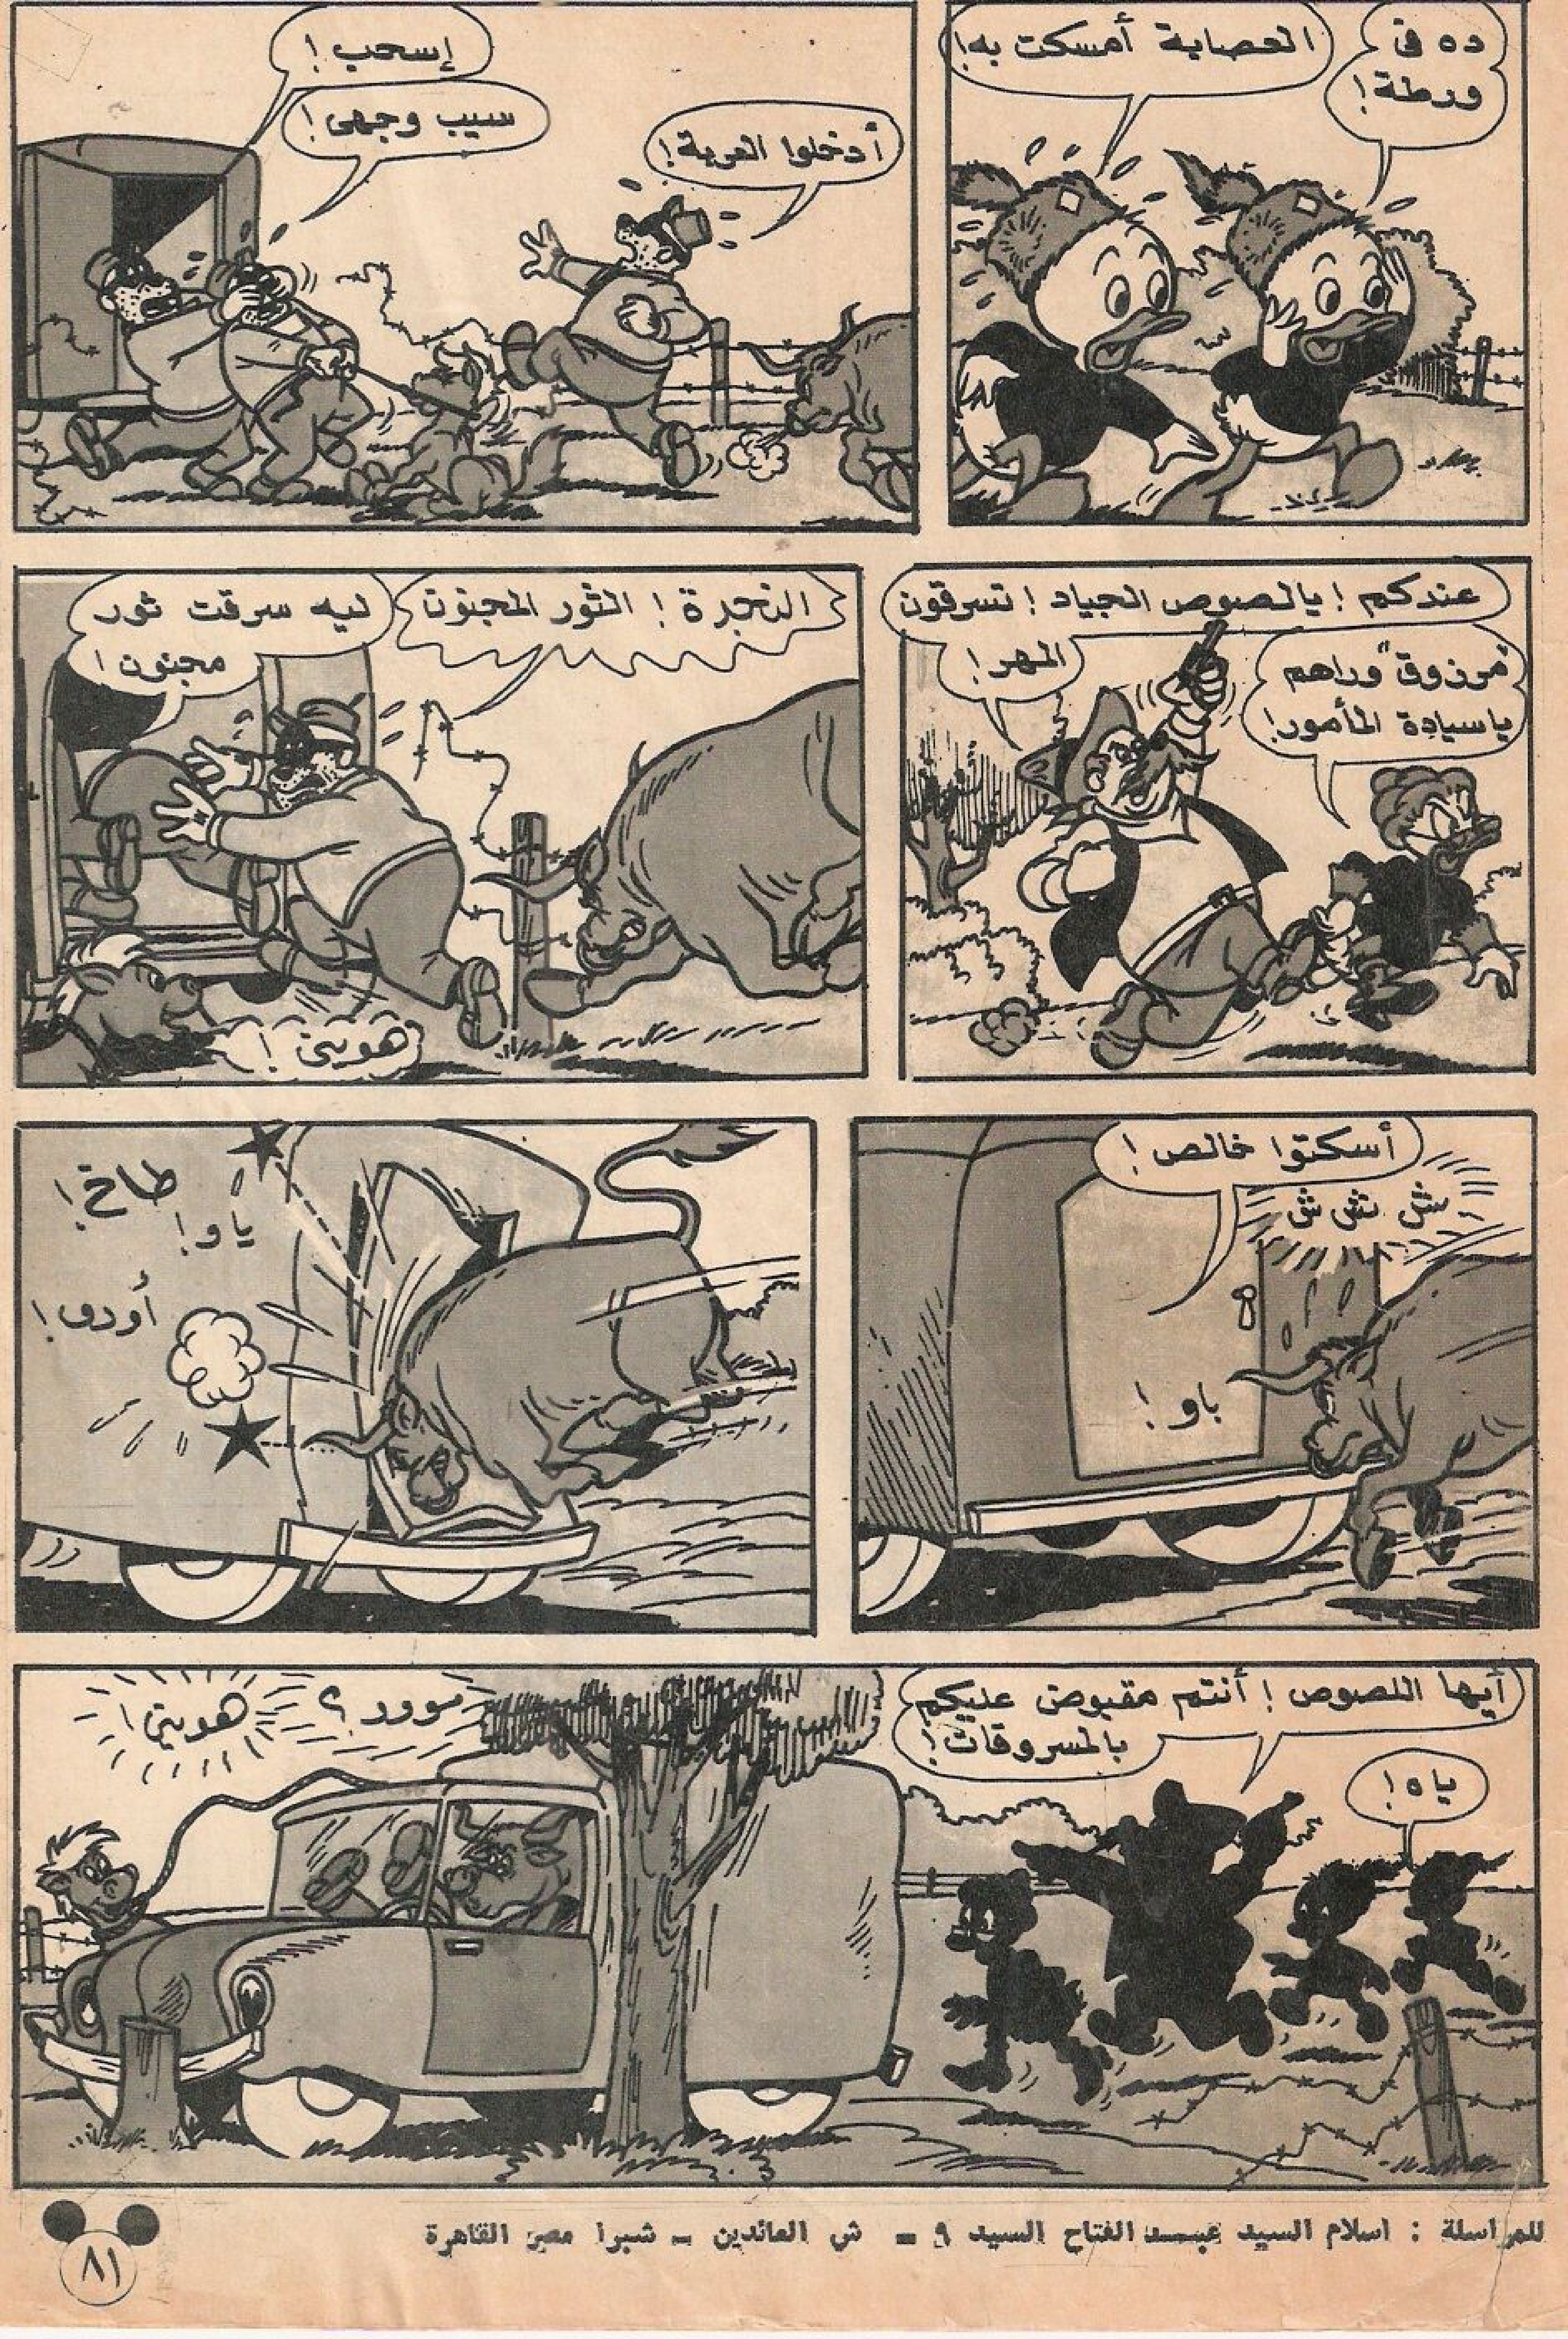 ده فى
ورطة!
العصابة أمسكت به!
أدخلوا العربة!
إسحب!
سيب وجهى!
عندكم! يالصوص الجياد! تسرقون
المهر!
"مرزوق" وراهم
ياسيادة المأمور!
النجدة! الثور المجنون
ليه سرقت ثور
مجنون!
هوىىٌ!
أسكتوا خالص!
ش ش ش
باو!
طاخ!
ياو!
أودى!
أيها اللصوص! أنتم مقبوض عليكم
بالمسروقات!
ياه!
موور؟
هوىىٌ!
للمراسلة : اسلام السيد عبد الفتاح السيد ٩ - ش العائدين - شبرا مصر القاهرة
٨١